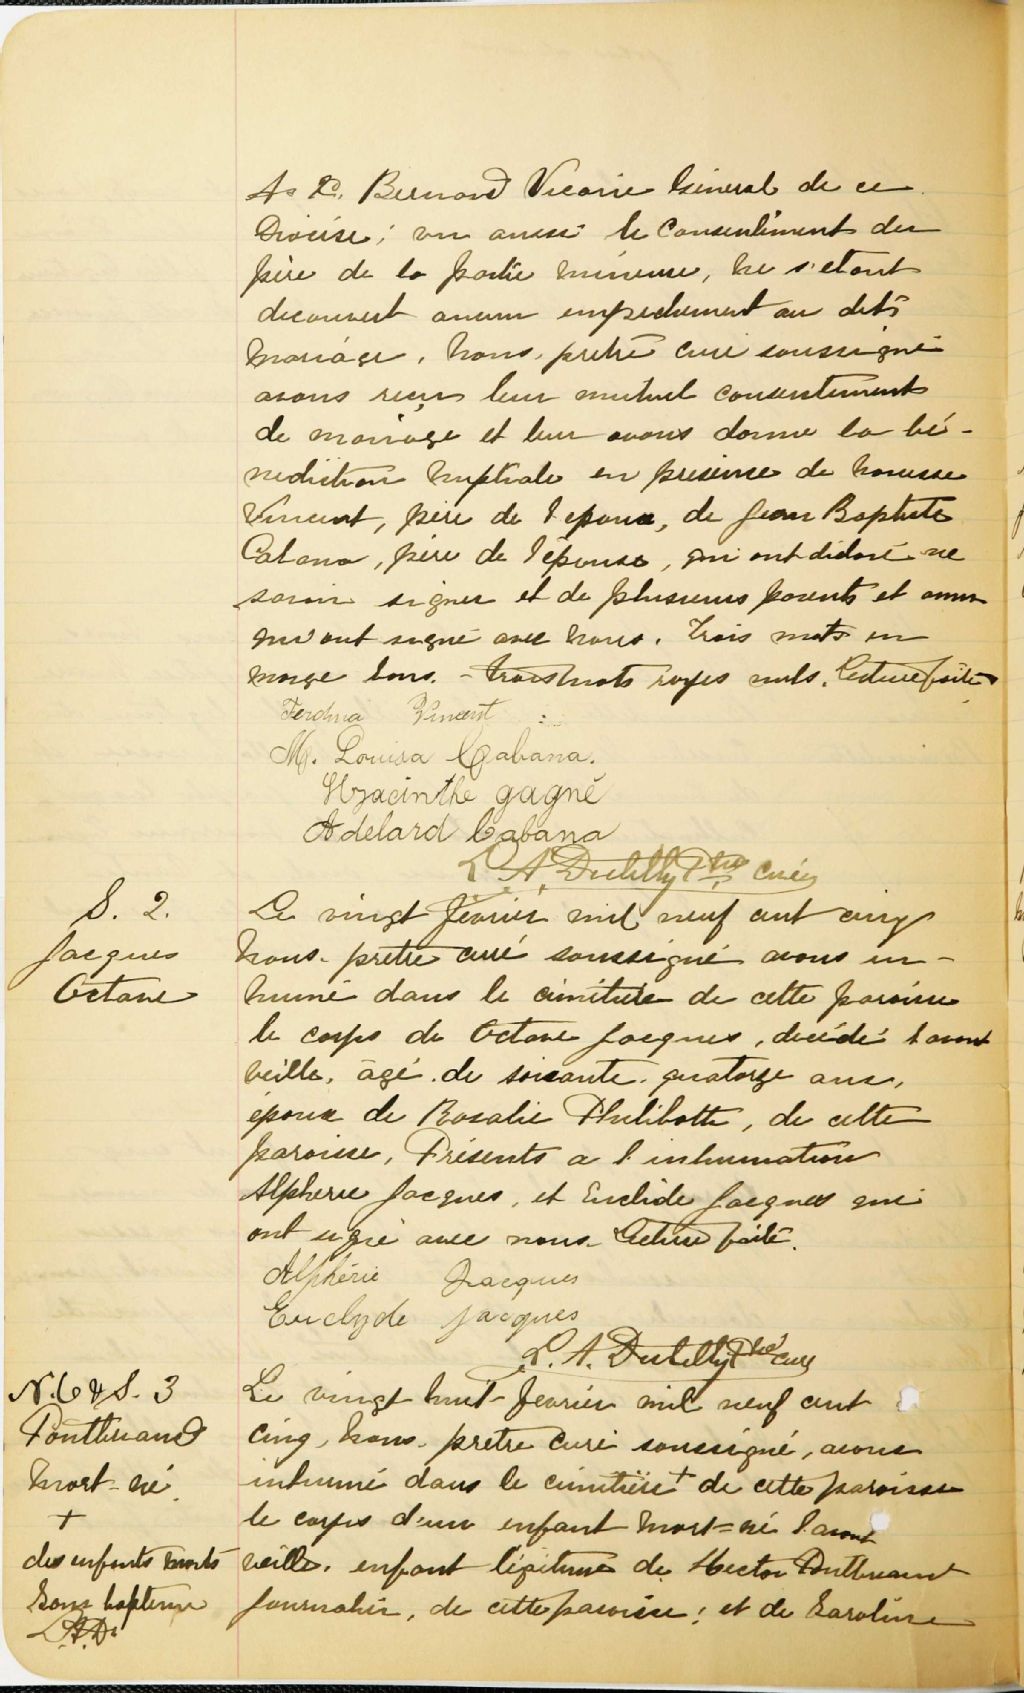 A. X. Bernard Vicaire Général de ce
Diocèse; vu aussi le consentiment du
père de la partie mineure, ne s'etant
decouvert aucun empechement au dit
mariage, nous, pretre curé soussigné
avons reçu leur mutuel consentement
de mariage et leur avons donné la bé-
nediction nuptiale en présence de
Vincent, père de l'epoux, de Jean Baptiste
Cabana, père de l'épouse, qui ont déclaré ne
savoir signer et de plusieurs parents et amis
qui ont signé avec nous. Trois mots en
marge bons. - trois mots rayés nuls. Lecture faite.
Ferdina Vincent
M. Louisa Cabana.
Hyacinthe gagné
Adelard Cabana
L. A. Dubilly Ptre curé
S. 2.
Jacques
Octave
Le vingt février mil neuf cent cinq
nous, pretre curé soussigné avons in-
humé dans le cimitière de cette paroisse
le corps de Octave Jacques, décédé l'avant
veille, âgé de soixante quatorze ans,
époux de Rosalie Philibotte, de cette
paroisse, Présents a l'inhumation
Alpherie Jacques, et Euclide Jacques qui
ont signé avec nous. Lecture faite.
Alphérie Jacques
Euclyde Jacques
L. A. Dubilly Ptre curé
N. C & S. 3
Ponttbriand
mort-né
+
des enfants morts
sans bapteme
L.A.D.
Le vingt huit février mil neuf cent
cinq, nous, pretre curé soussigné, avons
inhumé dans le cimitière + de cette paroisse
le corps d'un enfant mort-né l'avant
veille, enfant légitime de Hector Ponttbriand
journalier, de cette paroisse; et de Caroline